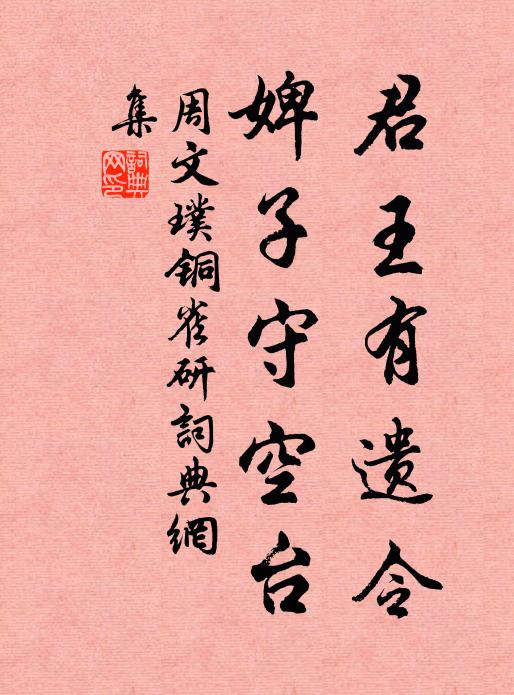 君王有遗令
婢子守空台
周文璞铜雀研詞典網
集
詞典
网印